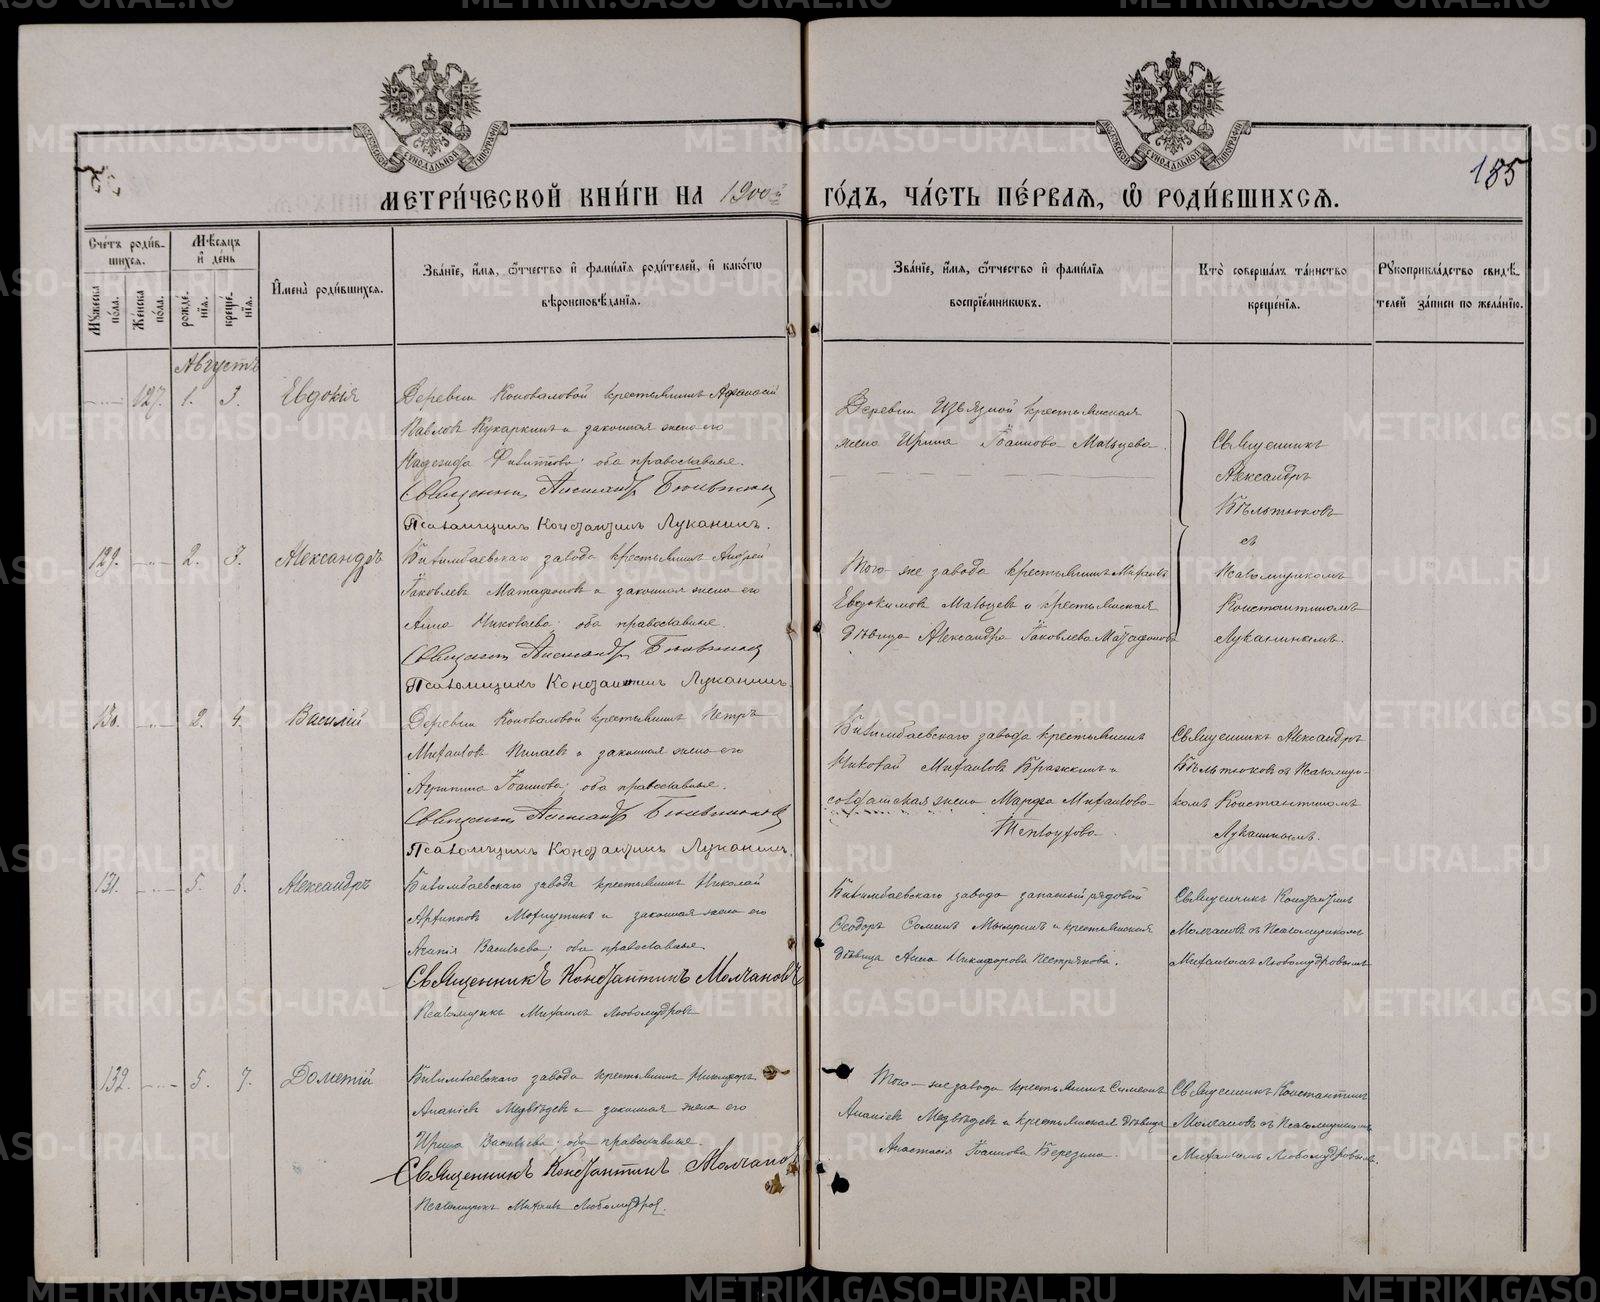 185
МЕТРИ́ЧЕСКОЙ КНИ́ГИ НА 1900й ГО́ДЪ, ЧА́СТЬ ПЕ́РВАѦ, Ѽ РОДИ́ВШИХСѦ.
Сче́тъ роди́в-
шихсѧ.
Мѣ́сѧцъ
и҆ де́нь
И҆мена̀ роди́вшихсѧ.
Зва́нїе, и҆́мѧ, ѻ҆́тчество и҆ фами́лїѧ роди́телей, и҆ како́гѡ
вѣроисповѣ́данїѧ.
Зва́нїе, и҆́мѧ, ѻ҆́тчество и҆ фами́лїѧ
воспрїе́мникѡвъ.
Кто̀ соверша́лъ та́инство
креще́нїѧ.
Рꙋкоприкла́дство свидѣ́-
телей за́писи по жела́нїю.
Мꙋ́жеска
по́ла.
Же́нска
по́ла.
рожде́-
нїѧ.
креще́-
нїѧ.
Августъ
127. 1. 3. Евдокія
Деревни Коноваловой крестьянинъ Афанасій
Павловъ Кукаркинъ и законная жена его
Надежда Филиппова; оба православные.
Священникъ Александръ
Псаломщикъ Константинъ Луканинъ.
Деревни Извязной крестьянская
жена Ирина Іоаннова Мальцева.
Священникъ
Александръ
Бѣльтюковъ
съ
Псаломщикомъ
Константиномъ
Луканинымъ.
129. 2. 3. Александръ
Билимбаевскаго завода крестьянинъ Андрей
Іаковлевъ Матафоновъ и законная жена его
Анна Николаева; оба православные.
Священникъ Александръ
Псаломщикъ Константинъ Луканинъ.
Того-же завода крестьянинъ Михаилъ
Евдокимовъ Мальцевъ и крестьянская
дѣвица Александра Іаковлева Матафонова
130. 2. 4. Василій
Деревни Коноваловой крестьянинъ Петръ
Михаиловъ Пинаевъ и законная жена его
Агрипина Іоаннова; оба православные.
Священникъ Александръ Бѣльтюковъ
Псаломщикъ Константинъ Луканинъ.
Билимбаевскаго завода крестьянинъ
Николай Михаиловъ и
солдатская жена Марфа Михаилова
Священникъ Александръ
Бѣльтюковъ съ Псаломщи-
комъ Константиномъ
Луканинымъ.
131. 5. 6. Александръ
Билимбаевскаго завода крестьянинъ Николай
Архиповъ и законная жена его
Агапія Васильева; оба православные
Священникъ Константинъ Молчановъ
Псаломщикъ Михаилъ Любомудровъ
Билимбаевскаго завода запасный рядовой
Ѳеодоръ Мымринъ и крестьянская
дѣвица Анна Никифорова Пестрякова.
Священникъ Константинъ
Молчановъ съ Псаломщикомъ
Михаиломъ Любомудровымъ
132. 5. 7. Дометій
Билимбаевскаго завода крестьянинъ Никифоръ
Ананіевъ Медвѣдевъ и законная жена его
Ирина Васильева; оба православные.
Священникъ Константинъ Молчановъ
Псаломщикъ Михаилъ Любомудровъ.
Того-же завода крестьянинъ Симеонъ
Ананіевъ Медвѣдевъ и крестьянская дѣвица
Анастасія Іоаннова Березина.
Священникъ Константинъ
Молчановъ съ Псаломщикомъ
Михаиломъ Любомудровымъ.
METRIKI.GASO-URAL.RU